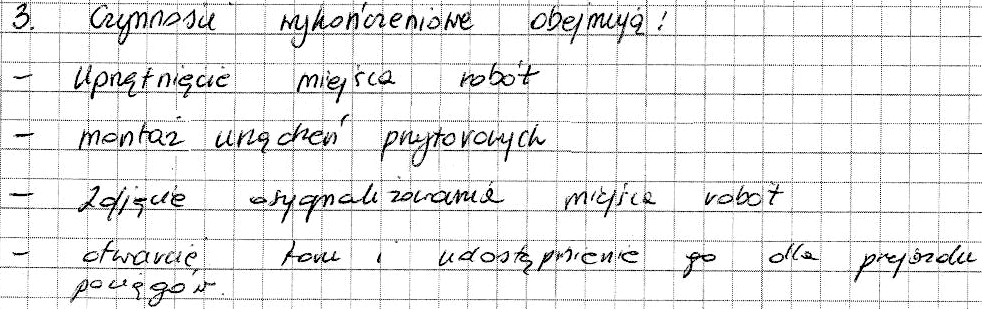 3. Czynności wykończeniowe obejmują:
- Uprzątnięcie miejsca robót
- montaż urządzeń przytorowych
- Zdjęcie osygnalizowania miejsca robót
- otwarcie toru i udostępnienie go dla przejazdu
pociągów.